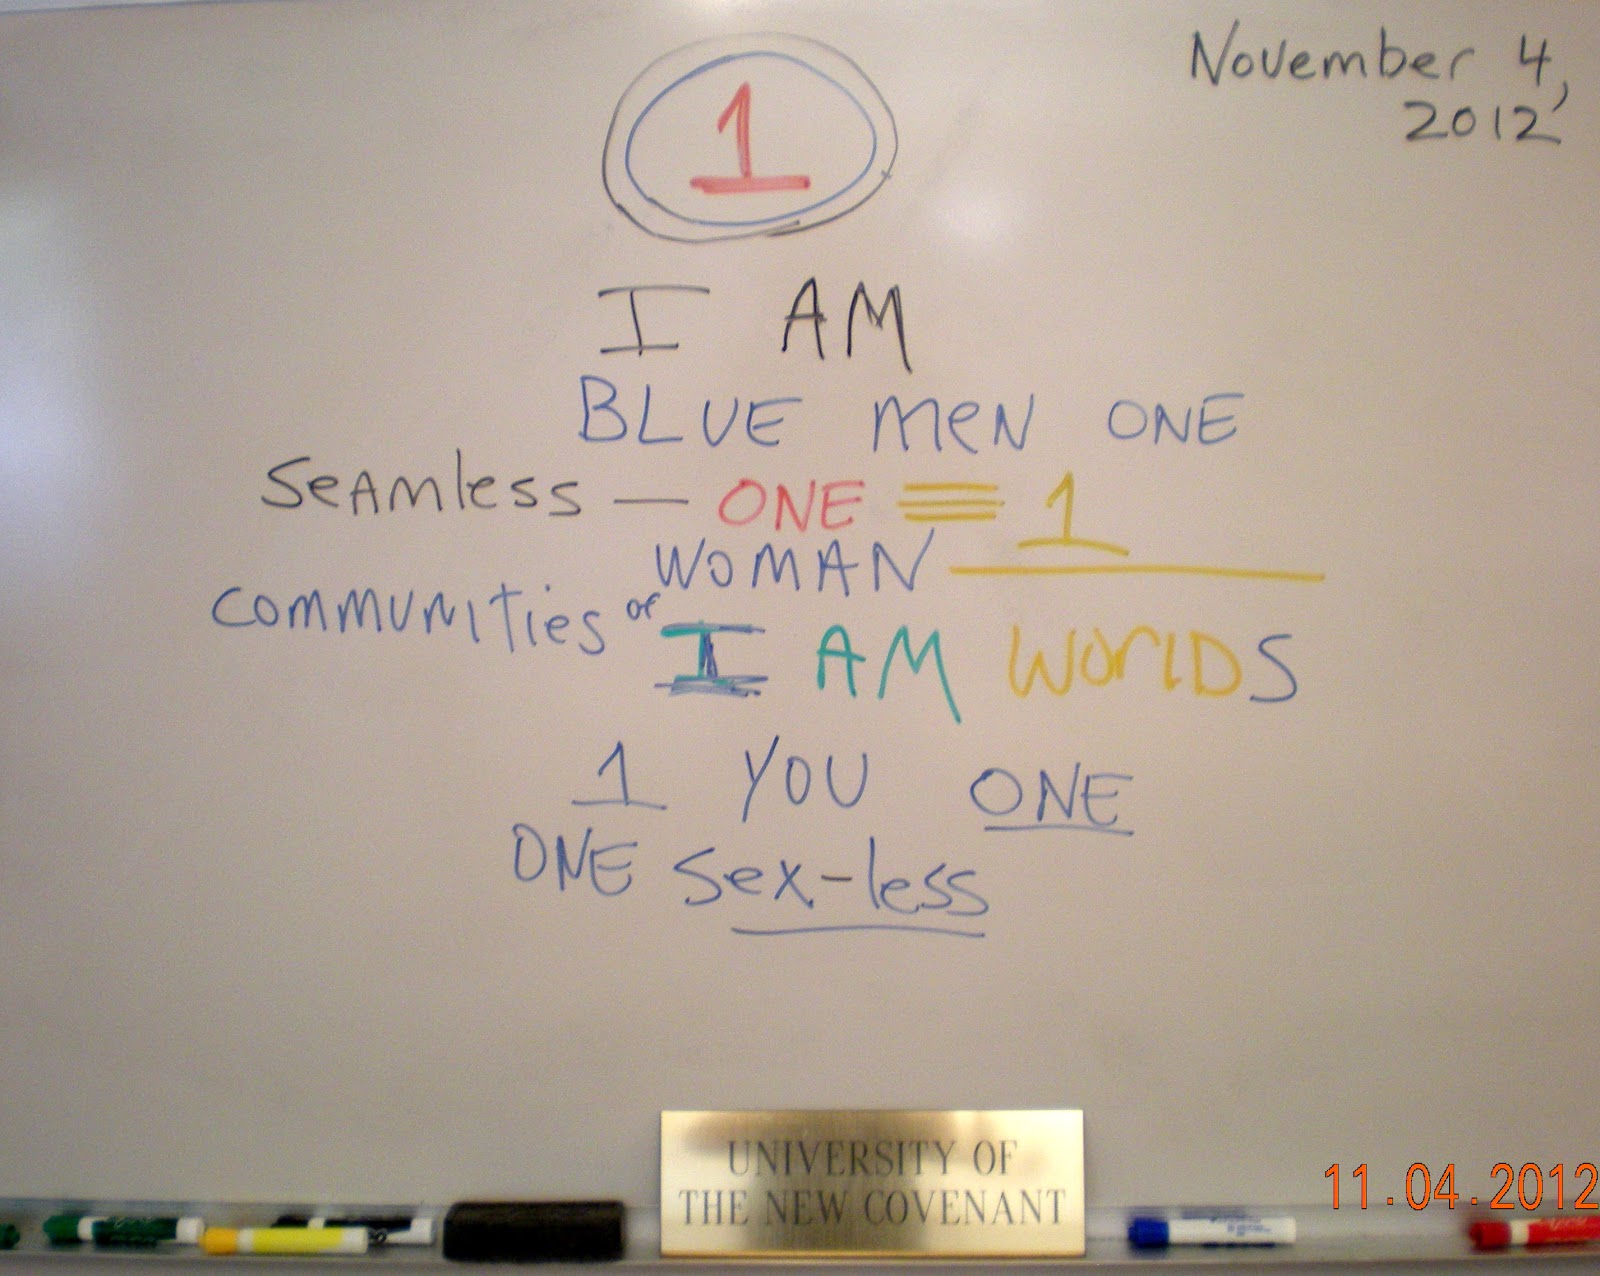 November 4,
2012
1
I AM
BLUE MEN ONE
SEAMless — ONE ≡ 1
WOMAN
COMMUNITIES OF
I AM WORLDS
1 YOU ONE
ONE Sex-less
UNIVERSITY OF
THE NEW COVENANT
11.04.2012